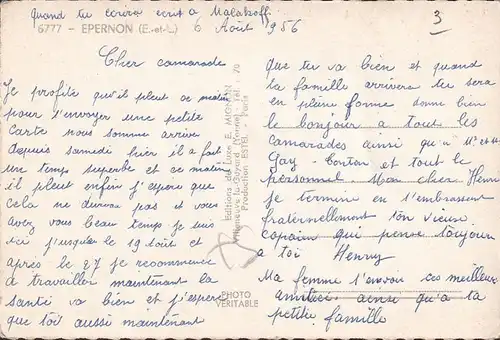 quand tu ecrira ecrit a Malakoff
6777 - EPERNON (E.-et-L.)
6 Août 1956
3
Cher camarade
Je profite qu'il pleut ce matin
pour t'envoyer une petite
carte nous somme arrive
depuis samedi hier il a fait
une temps superbe et ce matin
il pleut enfin j'espere que
cela ne durera pas et vous
avez vous beau temps je suis
ici j'usqu'au 19 aout et
après le 27 je recommence
à travailler maintenant la
santé va bien et j'espere
que toi aussi maintenant
Editions de Luxe E. MIGNON
Production ESTEL - Paris
PHOTO
VERITABLE
que tu va bien et quand
ta famille arrivera tu sera
en pleine forme donne bien
le bonjour a tout les
camarades ainsi qu'a Mr et
Gay - et tout le
personnel Mon cher Henri
je termine en t'embrassent
fraternellement ton vieux
copain qui pense toujour
a toi Henry
Ma femme t'envoi ces meilleur
amitiés ainsi qu'a ta
petite famille